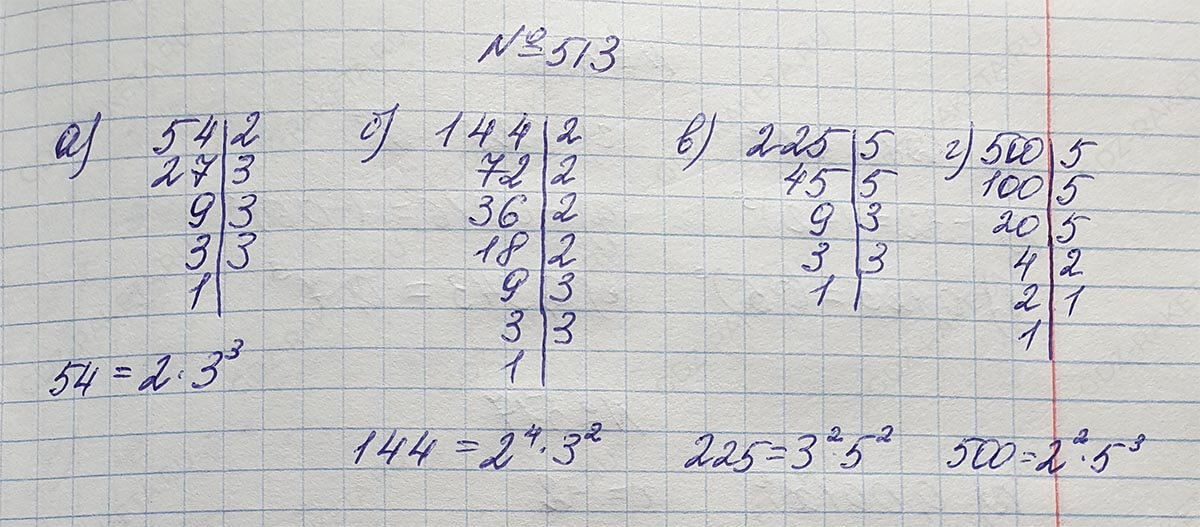 № 513
а) 54 | 2
27 | 3
9 | 3
3 | 3
1 |
54 = 2 · 3³
б) 144 | 2
72 | 2
36 | 2
18 | 2
9 | 3
3 | 3
1 |
144 = 2⁴ · 3²
в) 225 | 5
45 | 5
9 | 3
3 | 3
1 |
225 = 3² · 5²
г) 500 | 5
100 | 5
20 | 5
4 | 2
2 | 1
1 |
500 = 2² · 5³